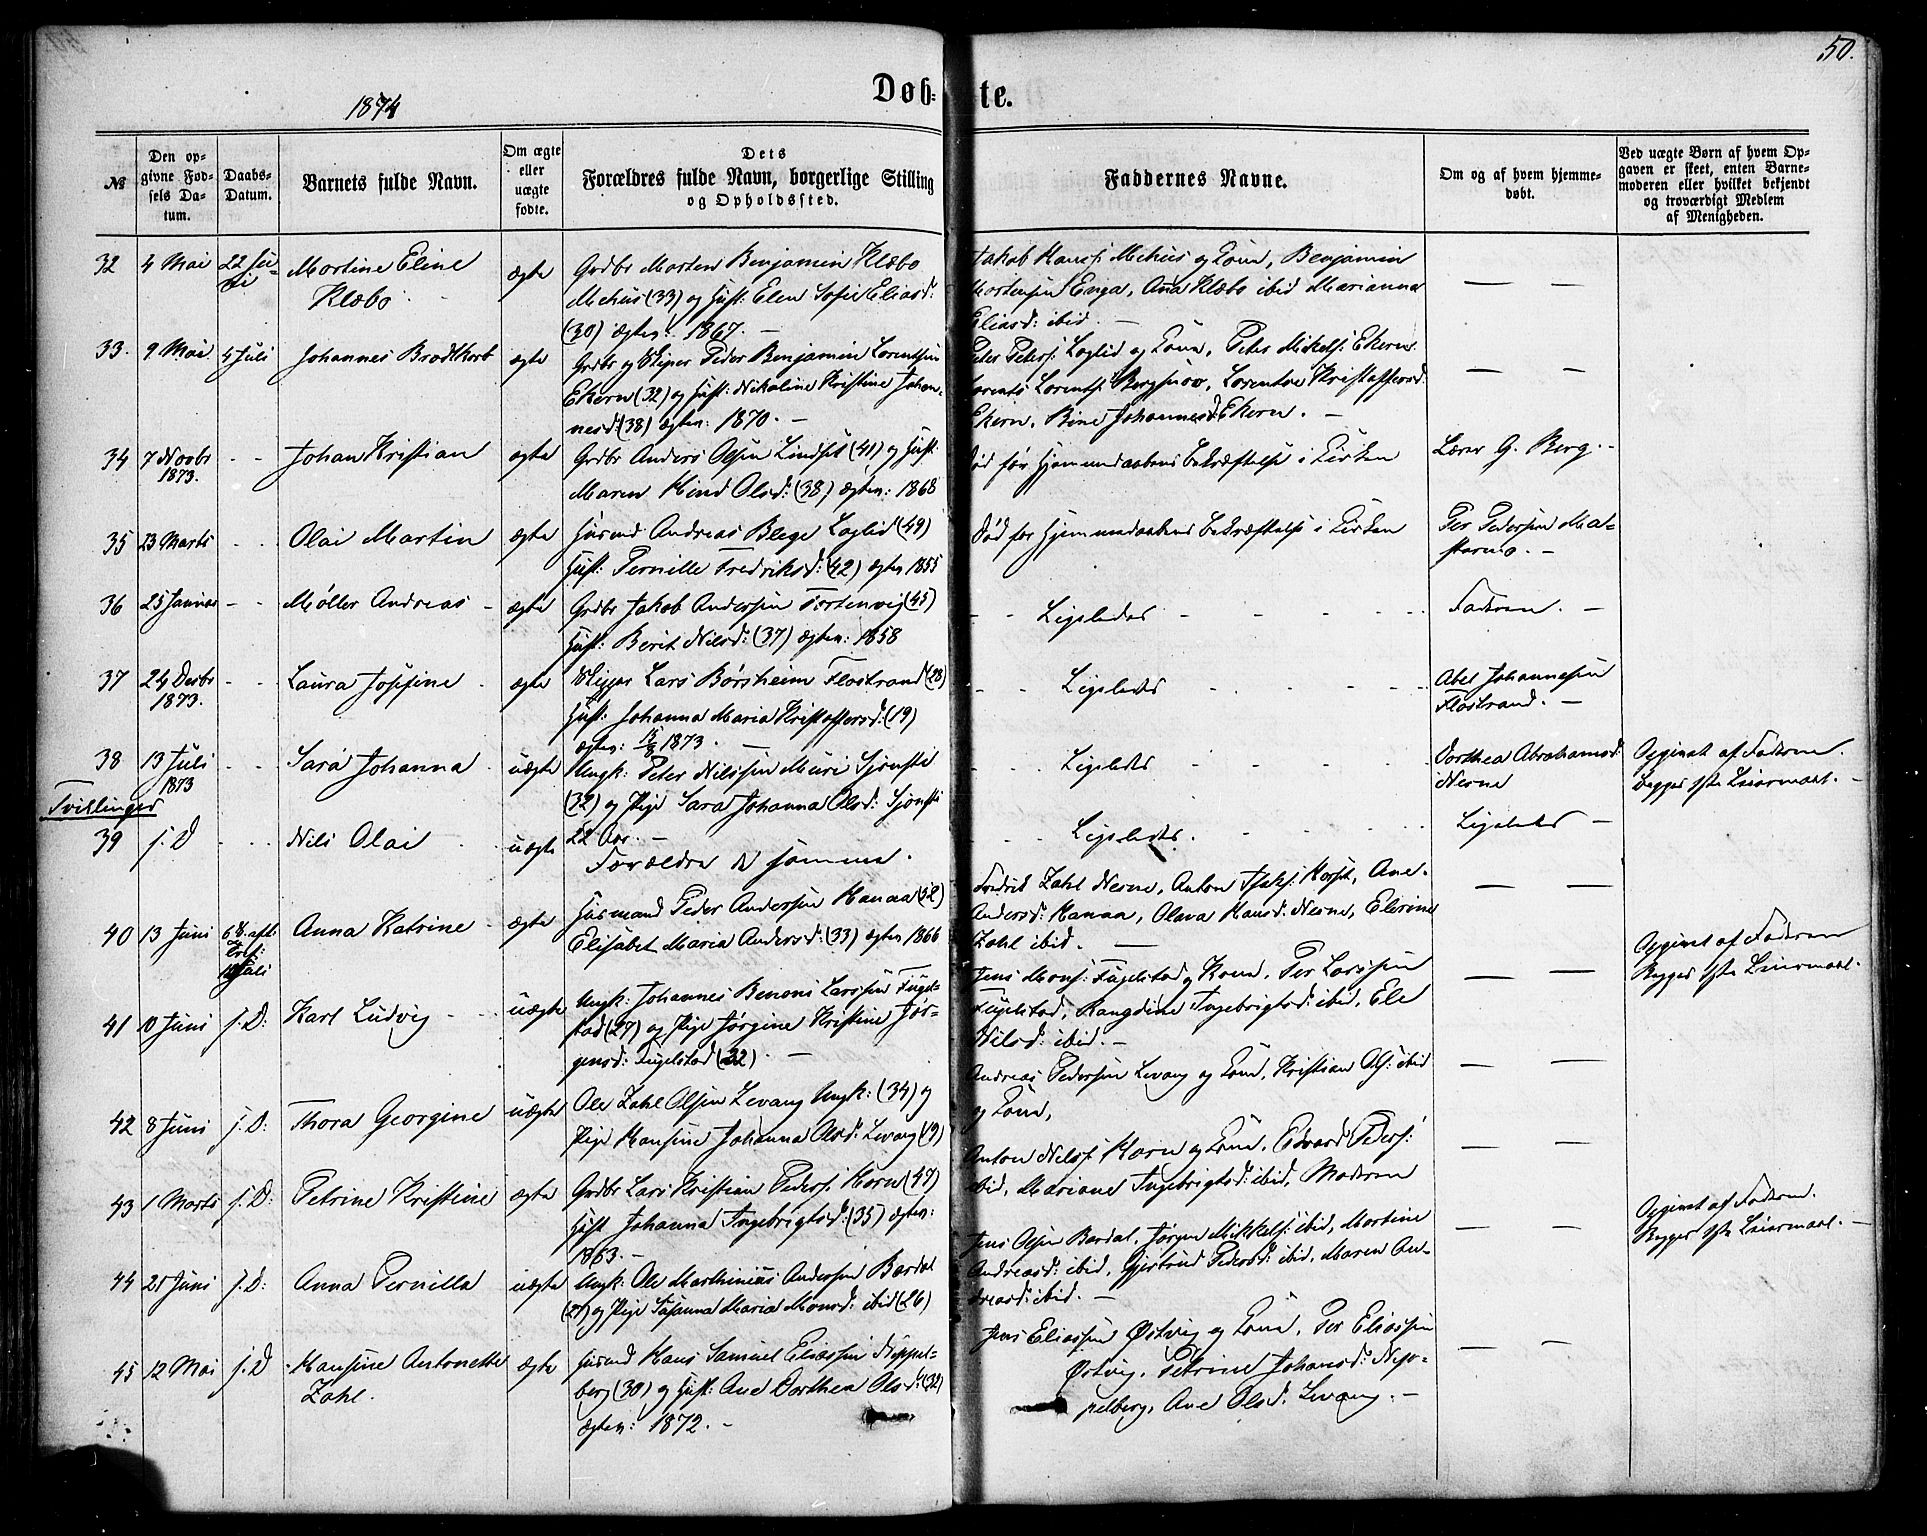 50.
1874
Døb-
te.
№
Den op-
givne Fød-
sels Da-
tum.
Daabs-
Datum.
Barnets fulde Navn.
Om ægte
eller
uægte
fødte.
Dets
Forældres fulde Navn, borgerlige Stilling
og Opholdssted.
Faddernes Navne.
Om og af hvem hjemme-
døbt.
Ved uægte Børn af hvem Op-
gaven er skeet, enten Barne-
moderen eller hvilket bekjendt
og troværdigt Medlem
af Menigheden.
32 4 Mai 22 Ju-
ni
Martine Eline
Klæbo
ægte
Grdbr Morten Benjamin Klæbo
Mehus (33) og Hust: Elen Sofie Eliasd:
(30) ægtev: 1867. –
Jakob Hansf: Mehus og Kone, Benjamin
Mortensen Enga, Anna Klæbo ibid Marianna
Eliasd: ibid. –
33. 9 Mai 4 Juli
Johannes Brodtkorb
ægte
Grdbr og Skiper Peder Benjamin Lorentsen
Ekern (32) og Hust: Nikoline Kristine Johan-
nesd: (38) ægtev: 1870. –
Peter Peters: Løglid og Kone, Peter Mikels: Ekern
Lorents Lorents: Bergsnov, Lorentse Kristoffersd:
Ekern, Bine Johannesd: Ekern. –
34 7 Novbr
1873.
Johan Kristian
ægte
Grdbr Anders Olsen Lindset (41) og Hust:
Maren Hind Olsd: (38) ægtev: 1868
død før Hjemmedaabens Bekræftelse i Kirken
Lærer G. Berg. –
35 23 Marts
Olai Martin
ægte
Husmd Andreas Blege Løglid (49)
Hust: Pernille Fredriksd: (42) ægtev 1855
Død før Hjemmedaabens Bekræftelse i Kirken
Per Pedersen Ma-
36 25 Januar
Møller Andreas
ægte
Grdbr Jakob Andersen Tortenvig (45)
Hust: Berit Nilsd: (37) ægtev: 1858
Ligeledes
Faderen. –
37 24 Decbr
1873.
Laura Josefine
ægte
Lars Børsheim Flostrand (28)
Hust: Johanna Maria Kristoffersd: (19)
ægtev: 1873.
Ligeledes
Abel Johannesen
Flostrand. –
38 13 Juli
1873
Sara Johanna
uægte
Ungk: Peter Nilssen Muri Sjonsti
(32) og Pige Sara Johanna Olsd: Sjonsti
22 Aar. –
Ligeledes
Dorthea Abrahamsd:
Nesne
Opgivet af Faderen.
Begges 1ste Leiermaal. –
Tvillinger
39 s. D
Nils Olai
uægte
Forældre de samme.
Ligeledes.
Ligeledes –
40 13 Juni
12 Juli
Anna Katrine
ægte
Husmand Peder Andersen Hanaa (32)
Elisabet Maria Andersd: (33) ægtev 1866
Fredrik Zahl Nesne, Anton Isaks: Horsk, Ane
Andersd: Hanaa, Olava Hansd: Nesne, Elerine
Zahl ibid.
Opgivet af Faderen
Begges 1ste Leiermaal.
41 10 Juni s. D:
Karl Ludvig
uægte
Ungk: Johannes Benoni Larssen Fugel-
stad (27) og Pige Jørgine Kristine Jør-
gensd: Fugelstad (22). –
Jens Mons: Fugelstad og Kone, Per Larssen
Fugelstad, Rangdine Ingebrigtsd: ibid, Ele
Nilsd: ibid. –
42 8 Juni s. D:
Thora Georgine
uægte
Ole Zahl Olsen Levang Ungk: (34) og
Pige Hansine Johanna Olsd: Levang (19)
Andreas Pedersen Levang og Kone, Kristian Ols: ibid
og Kone,
43 1 Marts s. D:
Petrine Kristine
ægte
Grdbr Lars Kristian Peders: Horn (47)
Hust Johanna Ingebrigtsd: (35) ægtev:
1863. –
Anton Nils: Horn og Kone, Edvard Peders:
ibid, Mariane Ingebrigtsd: ibid, Moderen
Opgivet af Faderen.
Begges 1ste Leiermaal. –
44 21 Juni s. D:
Anna Pernilla
uægte
Ungk: Ole Marthinius Andersen Bardal
(27) og Pige Susanna Maria Monsd: ibid (26)
Jens Olsen Bardal, Jørgen Mikkels: ibid, Martine
Andreasd: ibid, Gjertrud Pedersd: ibid, Maren An-
dreasd: ibid. –
45 12 Mai s. D
Hansine Antonette
Zahl.
ægte
Husmd Hans Samuel Eliassen Neppel-
berg (30) og Hust: Ane Dorthea Olsd: (32)
ægtev: 1872. –
Jens Eliassen Østvig og Kone, Per Eliassen
Østvig, Petrine Johansd: Nep-
pelberg, Ane Olsd: Levang. –